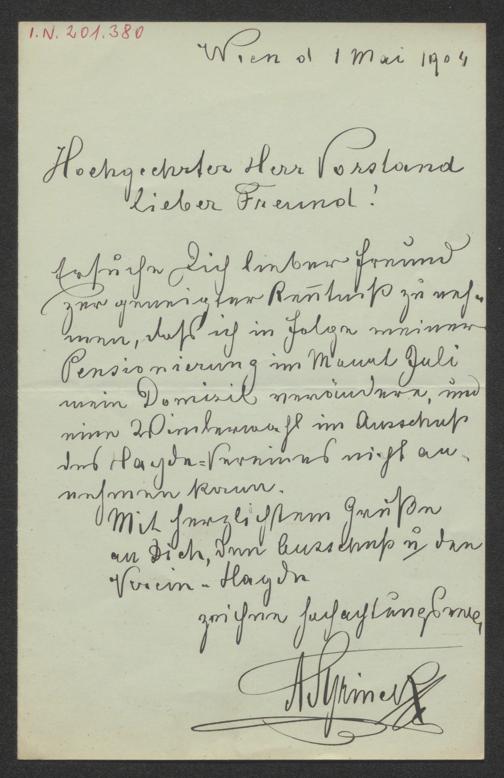 I.N. 201.380
Wien d 1 Mai 1904
Hochgeehrter Herr Vorstand
lieber Freund!
Ersuche Dich lieber Freund
zur geneigter Kentniß zu neh-
men, daß ich in Folge meiner
Pensionierung im Monat Juli
mein Domizil verändere, und
eine Wiederwahl im Ausschuß
des Haydn=Vereines nicht an-
nehmen kann.
Mit herzlichstem Gruße
an Dich, dem Ausschuß u den
Verein-Haydn
zeichne hochachtungsvoll